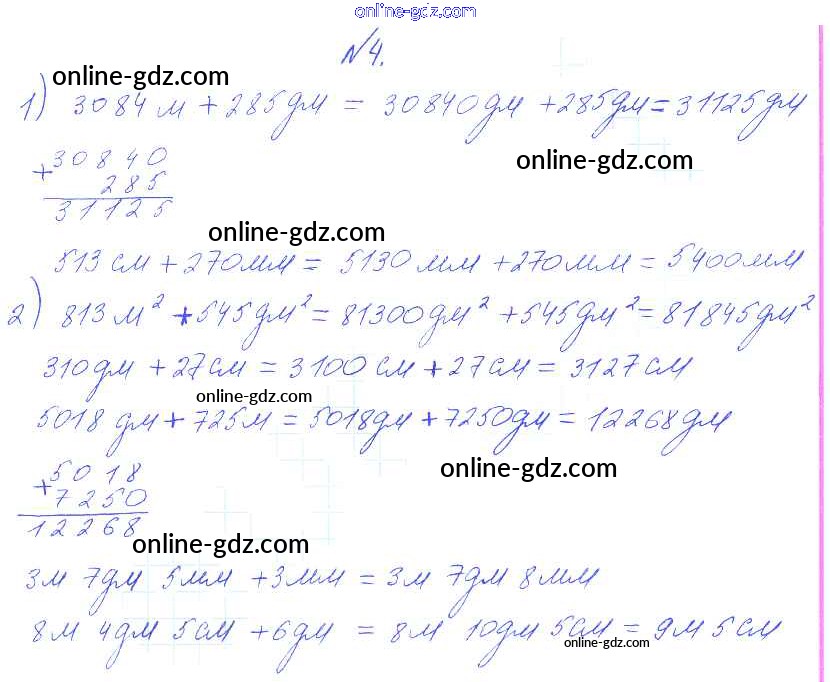 online-gdz.com
№4.
online-gdz.com
1) 3084 м + 285 дм = 30840 дм + 285 дм = 31125 дм
+30840
285
31125
online-gdz.com
online-gdz.com
513 см + 270 мм = 5130 мм + 270 мм = 5400 мм
2) 813 м² + 545 дм² = 81300 дм² + 545 дм² = 81845 дм²
310 дм + 27 см = 3100 см + 27 см = 3127 см
online-gdz.com
5018 дм + 725 м = 5018 дм + 7250 дм = 12268 дм
online-gdz.com
+5018
7250
12268
online-gdz.com
3м 7дм 5мм + 3мм = 3м 7дм 8мм
8м 4дм 5см + 6дм = 8м 10дм 5см = 9м 5см
online-gdz.com